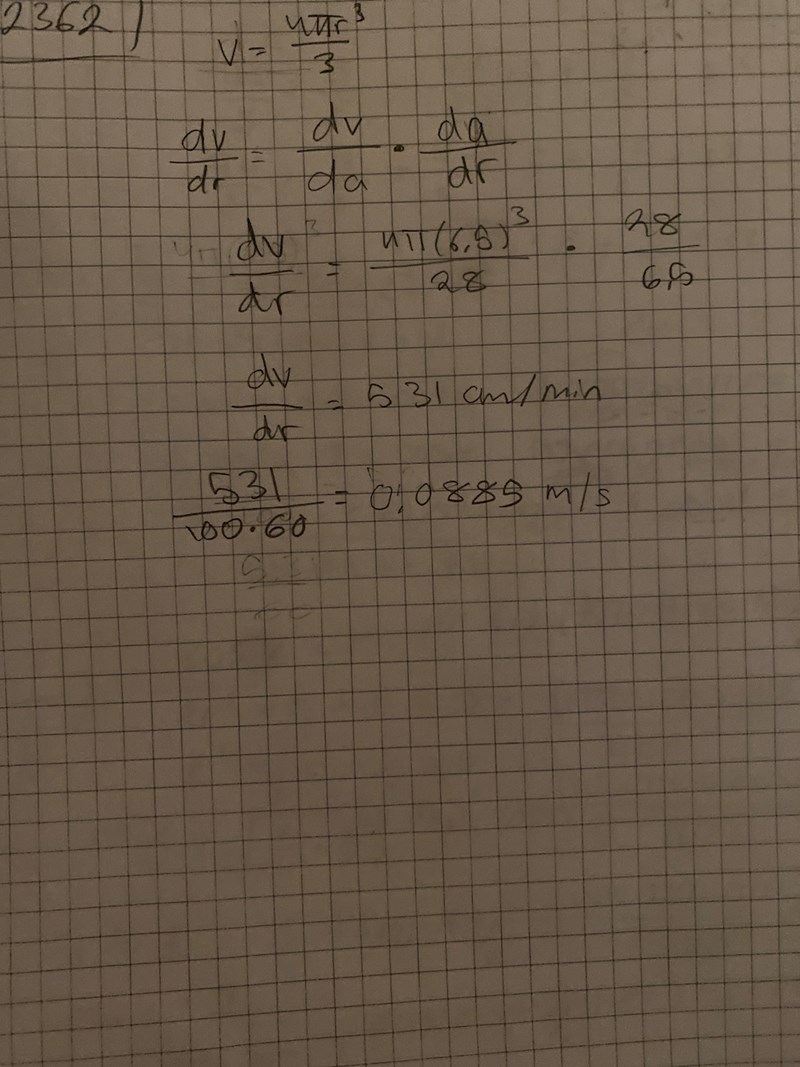 2362)
V = 4πr³/3
dv/dr = dv/da · da/dr
dv/dr = 4π(6,5)³/28 · 28/6,5
dv/dr = 531 cm/min
531/100·60 = 0,0885 m/s